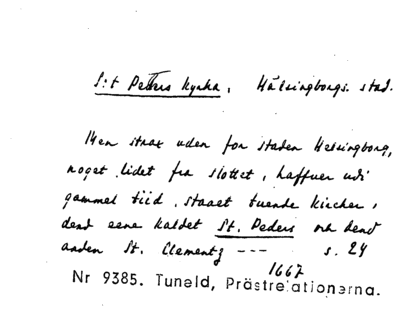 S:t Peders kyrka, Hälsingborgs stad.
Men strax uden for staden Helsingborg,
noget lidet fra slottet, haffuer udi
gammel tiid staaet tuende kircher,
dend eene kaldet St. Peders och dend
anden St. Clementz --- s. 24
1667
Nr 9385. Tuneld, Prästrelationerna.